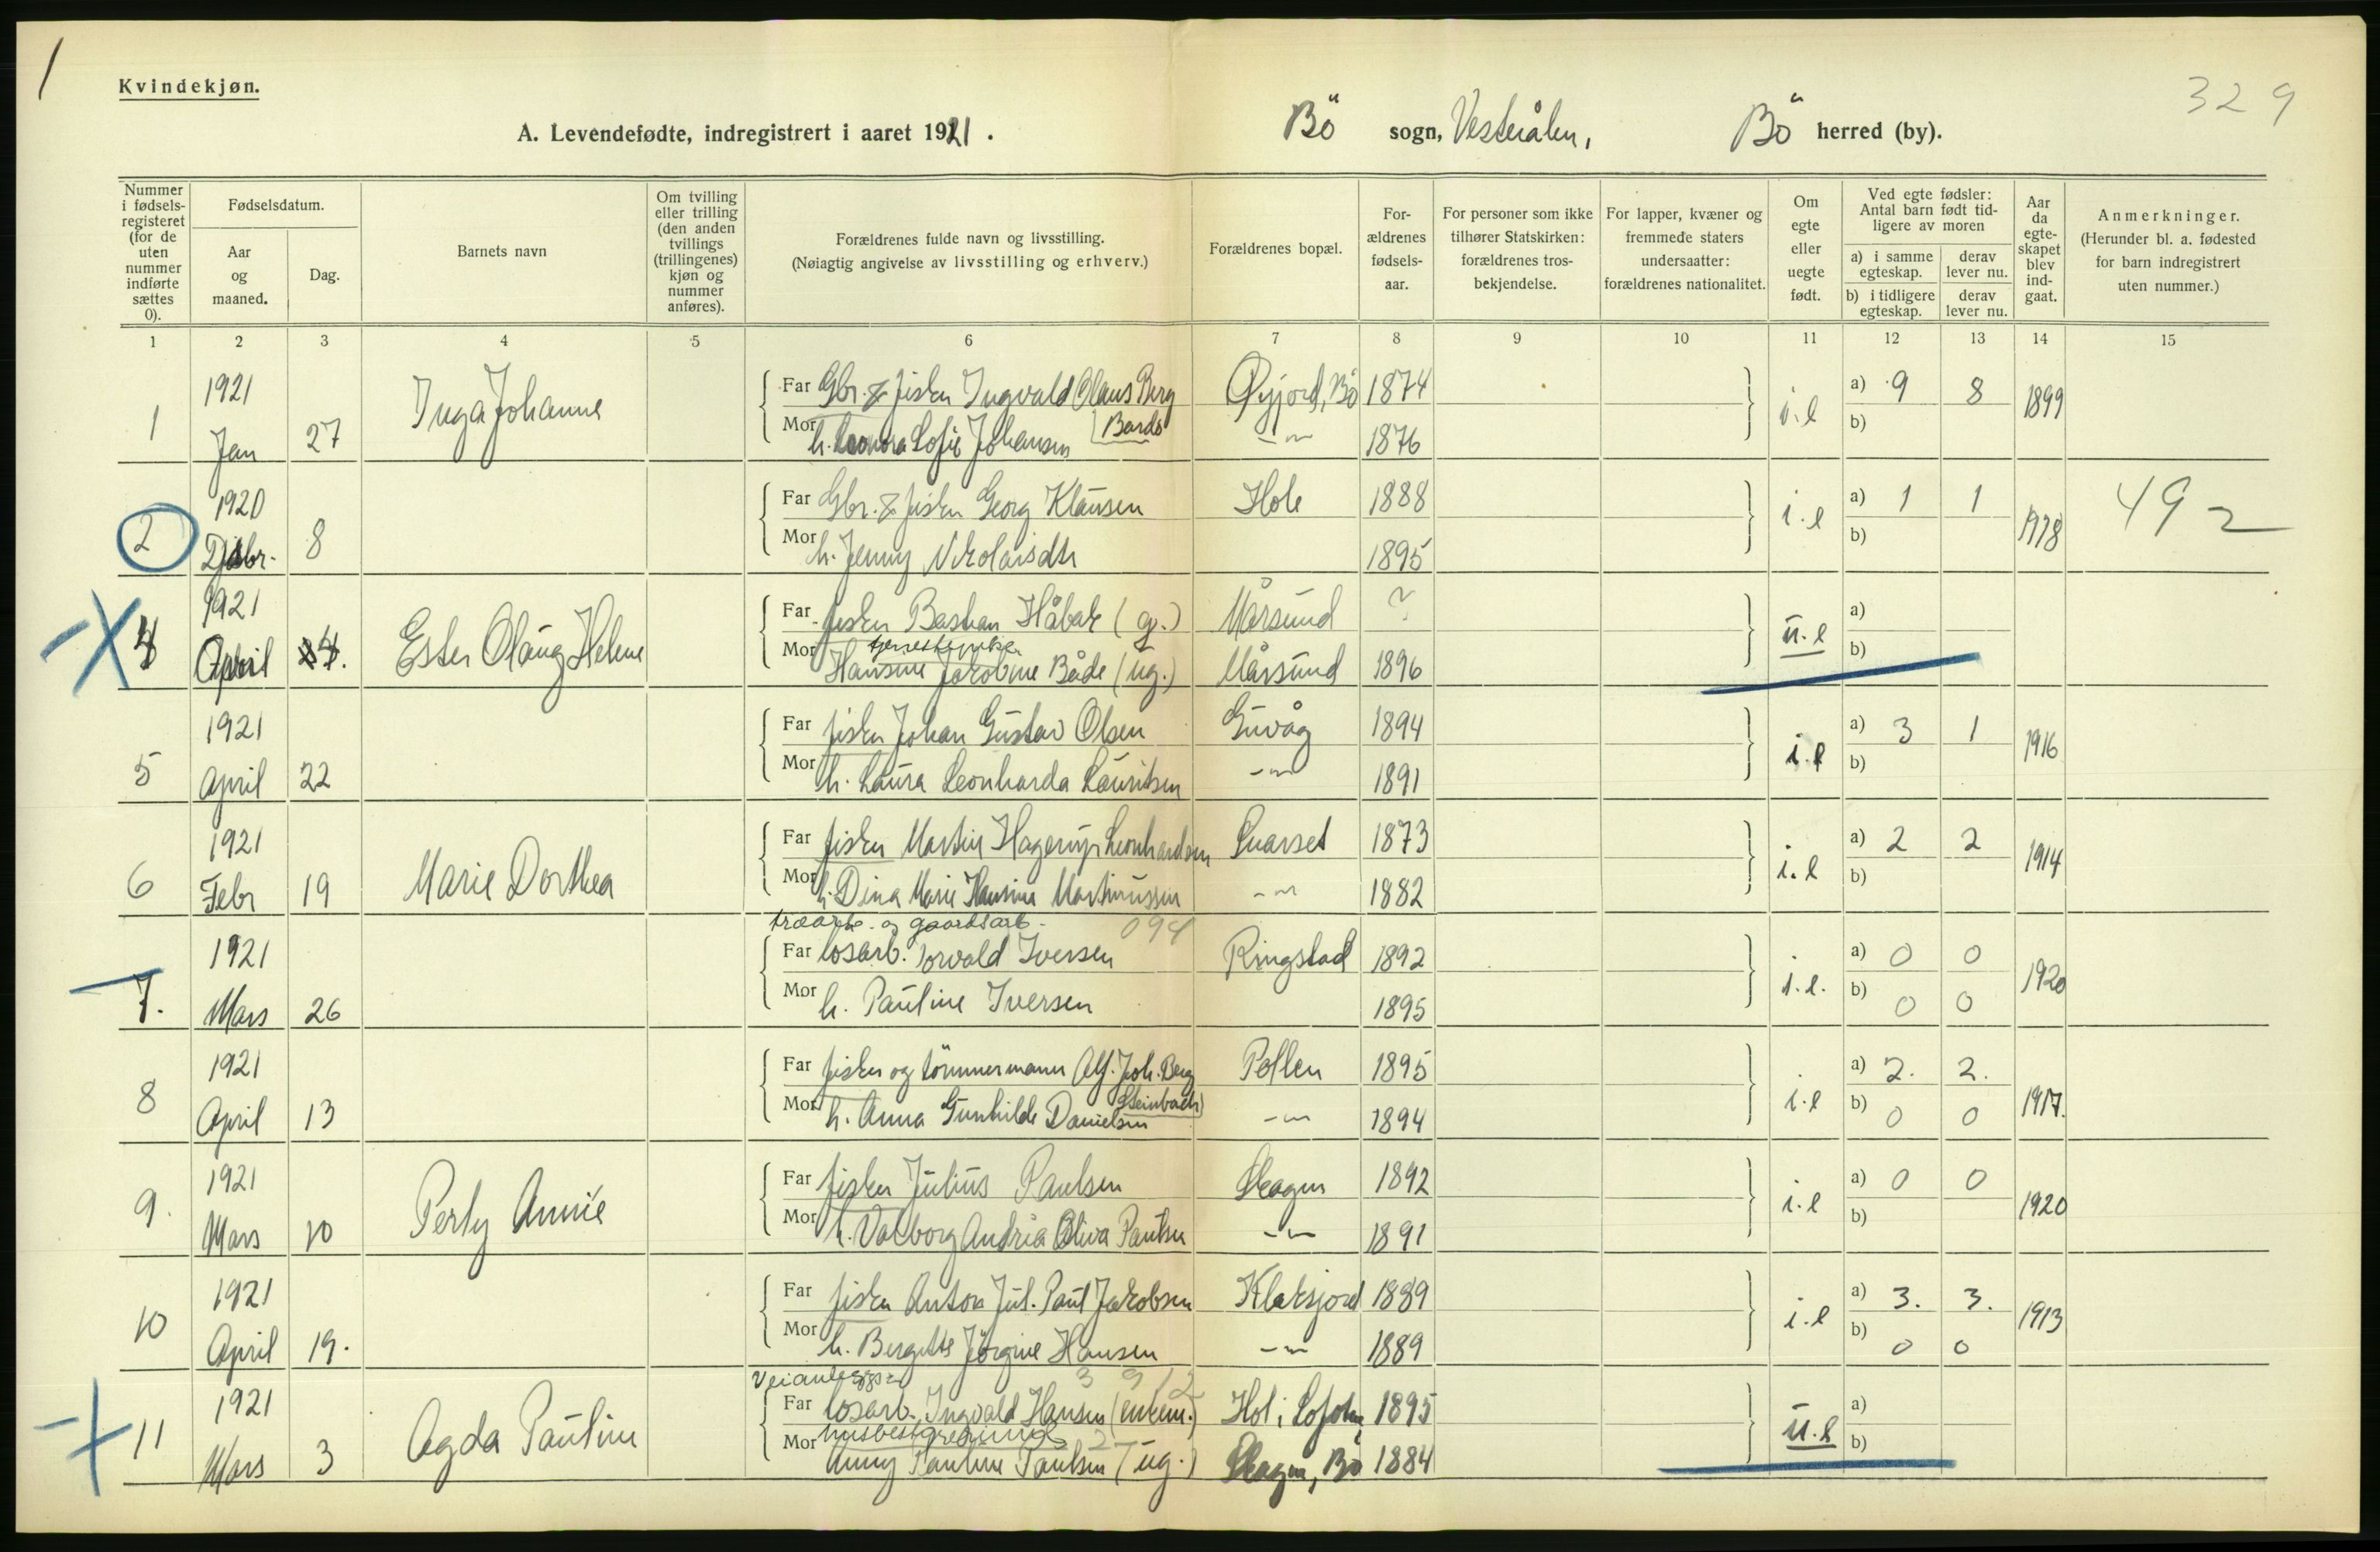 1
Kvindekjøn.
329
A. Levendefødte, indregistrert i aaret 1921. Bö sogn, Vesterålen, Bö herred (by).
Nummer i fødselsregisteret (for de uten nummer indførte sættes 0).
Fødselsdatum.
Aar og maaned.
Dag.
Barnets navn
Om tvilling eller trilling (den anden tvillings (trillingenes) kjøn og nummer anføres).
Forældrenes fulde navn og livsstilling.
(Nøiagtig angivelse av livsstilling og erhverv.)
Forældrenes bopæl.
Forældrenes fødselsaar.
For personer som ikke tilhører Statskirken: forældrenes trosbekjendelse.
For lapper, kvæner og fremmede staters undersaatter: forældrenes nationalitet.
Om egte eller uegte født.
Ved egte fødsler: Antal barn født tidligere av moren
a) i samme egteskap.
derav lever nu.
b) i tidligere egteskap.
derav lever nu.
Aar da egteskapet blev indgaat.
Anmerkninger.
(Herunder bl. a. fødested for barn indregistrert uten nummer.)
1 2 3 4 5 6 7 8 9 10 11 12 13 14 15
1 1921 Jan 27 Inga Johanne
Far Gbr. & fisker Ingvald Olaus Berg Øyjord, Bö 1874 i.e a) 9 8 1899
Mor h. Leonora Sofie Johansen Bardo -"- 1876 b)
2 1920 Dsbr. 8
Far Gbr. & fisker Georg Klausen Hole 1888 i.e a) 1 1 1918 49 2
Mor h. Jenny Nikolaisdtr 1895 b)
4 1921 April 4. Ester Olaug Helene
Far fisker Bastian Håbak (g.) Mårsund ? u.e a)
Mor tjenestepike
Hansine Jakobine Både (ug.) Mårsund 1896 b)
5 1921 April 22
Far fisker Johan Gustav Olsen Guvåg 1894 i.e a) 3 1 1916
Mor h. Laura Leonharda Lauritsen -"- 1891 b)
6 1921 Febr 19 Marie Dorthea
Far fisker Martin Hagerup Leonhardsen Snarset 1873 i.e a) 2 2 1914
Mor h. Dina Marie Hansine Martinussen -"- 1882 b)
træarb. og gaardsarb. 094
7. 1921 Mars 26
Far losarb. Torvald Iversen Ringstad 1892 i.e. a) 0 0 1920
Mor h. Pauline Iversen 1895 b) 0 0
8 1921 April 13
Far fisker og tömmermann Alf. Joh. Berg Pollen 1895 i.e a) 2. 2. 1917.
Mor h. Anna Gunhilde Danielsen Steinbach -"- 1894 b) 0 0
9. 1921 Mars 10 Perly Annie
Far fisker Julius Paulsen Skagen 1892 i.e a) 0 0 1920
Mor h. Valborg Andria Oliva Paulsen -"- 1891 b)
10 1921 April 19.
Far fisker Anton Jul. Paul Jakobsen Klaksjord 1889 i.e a) 3. 3. 1913
Mor h. Bergitte Jörgine Hansen -"- 1889 b) 0 0
Veianlegg 3 9 12
11 1921 Mars 3 Agda Pauline
Far losarb. Ingvald Hansen (enkem.) Hol i Lofoten 1895 u.e a)
husbestyrerinde 2
Mor Anny Pauline Paulsen (ug.) Skagen, Bö 1884 b)